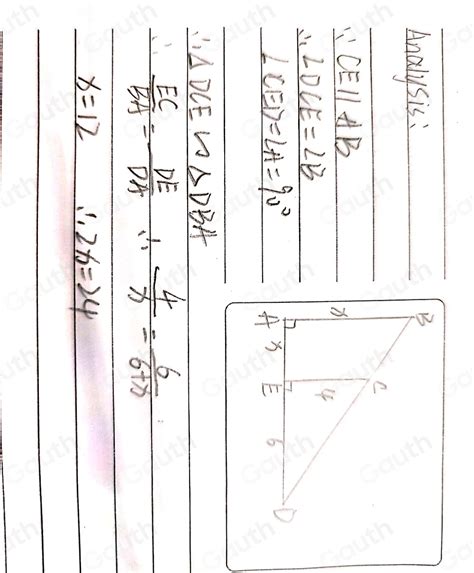 Analysis:
∵ CE∥AB
∴ ∠DCE=∠B
∠CED=∠A=90°
∴ △DCE∽△DBA
∴ EC/BA = DE/DA ∴ 4/x = 6/(6+x)
x=12 ∴ 2x=24
B
x
C
4
A
x
E
6
D
Gauth